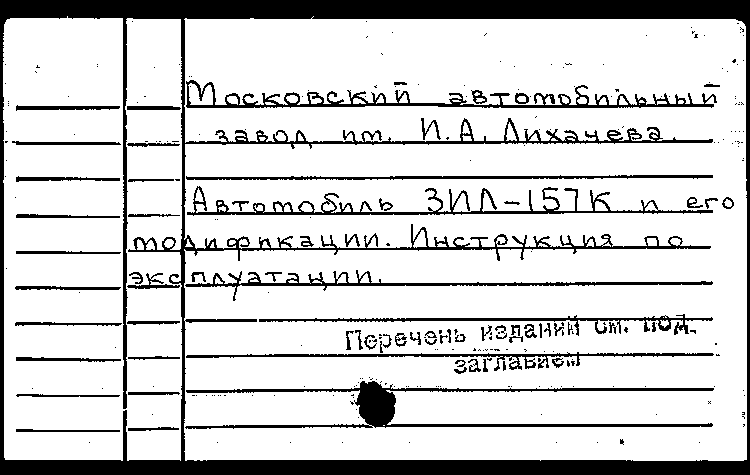 Московский автомобильный
завод им. И.А. Лихачева.
Автомобиль ЗИЛ-157К и его
модификации. Инструкция по
эксплуатации.
Перечень изданий см. под
заглавием